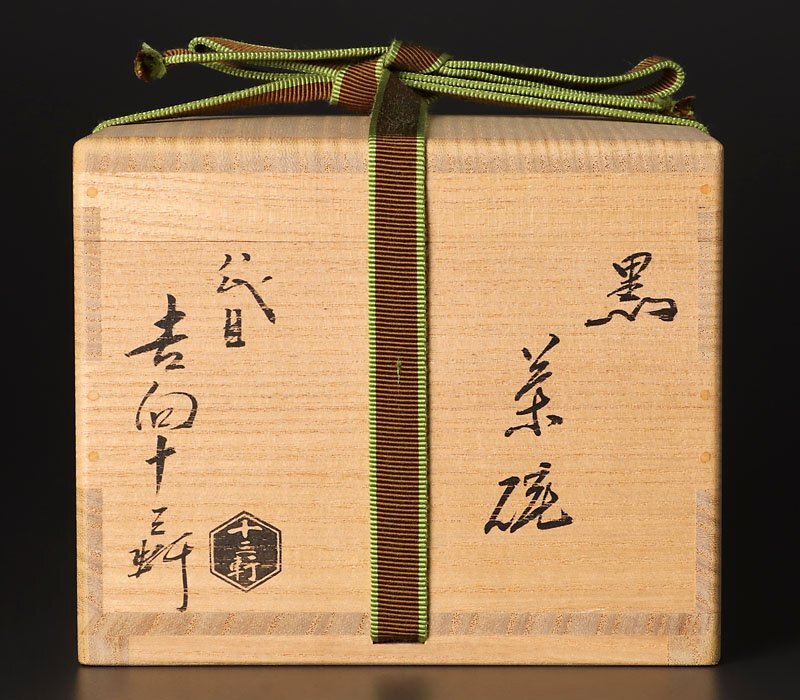 黒茶碗
八代目
吉向十三軒
十三軒